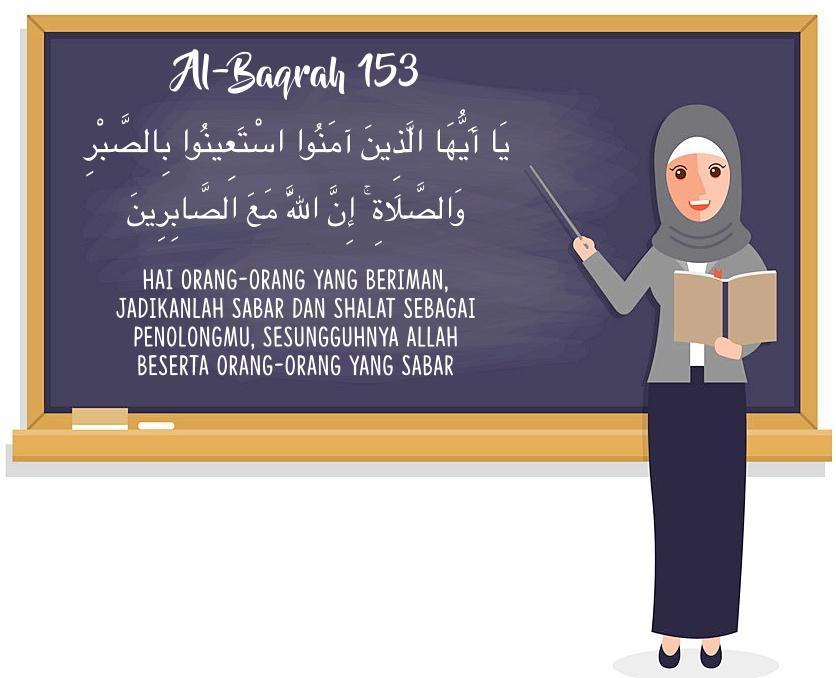 Al-Baqrah 153
يَا أَيُّهَا الَّذِينَ آمَنُوا اسْتَعِينُوا بِالصَّبْرِ
وَالصَّلَاةِ ۚ إِنَّ اللَّهَ مَعَ الصَّابِرِينَ
HAI ORANG-ORANG YANG BERIMAN,
JADIKANLAH SABAR DAN SHALAT SEBAGAI
PENOLONGMU, SESUNGGUHNYA ALLAH
BESERTA ORANG-ORANG YANG SABAR